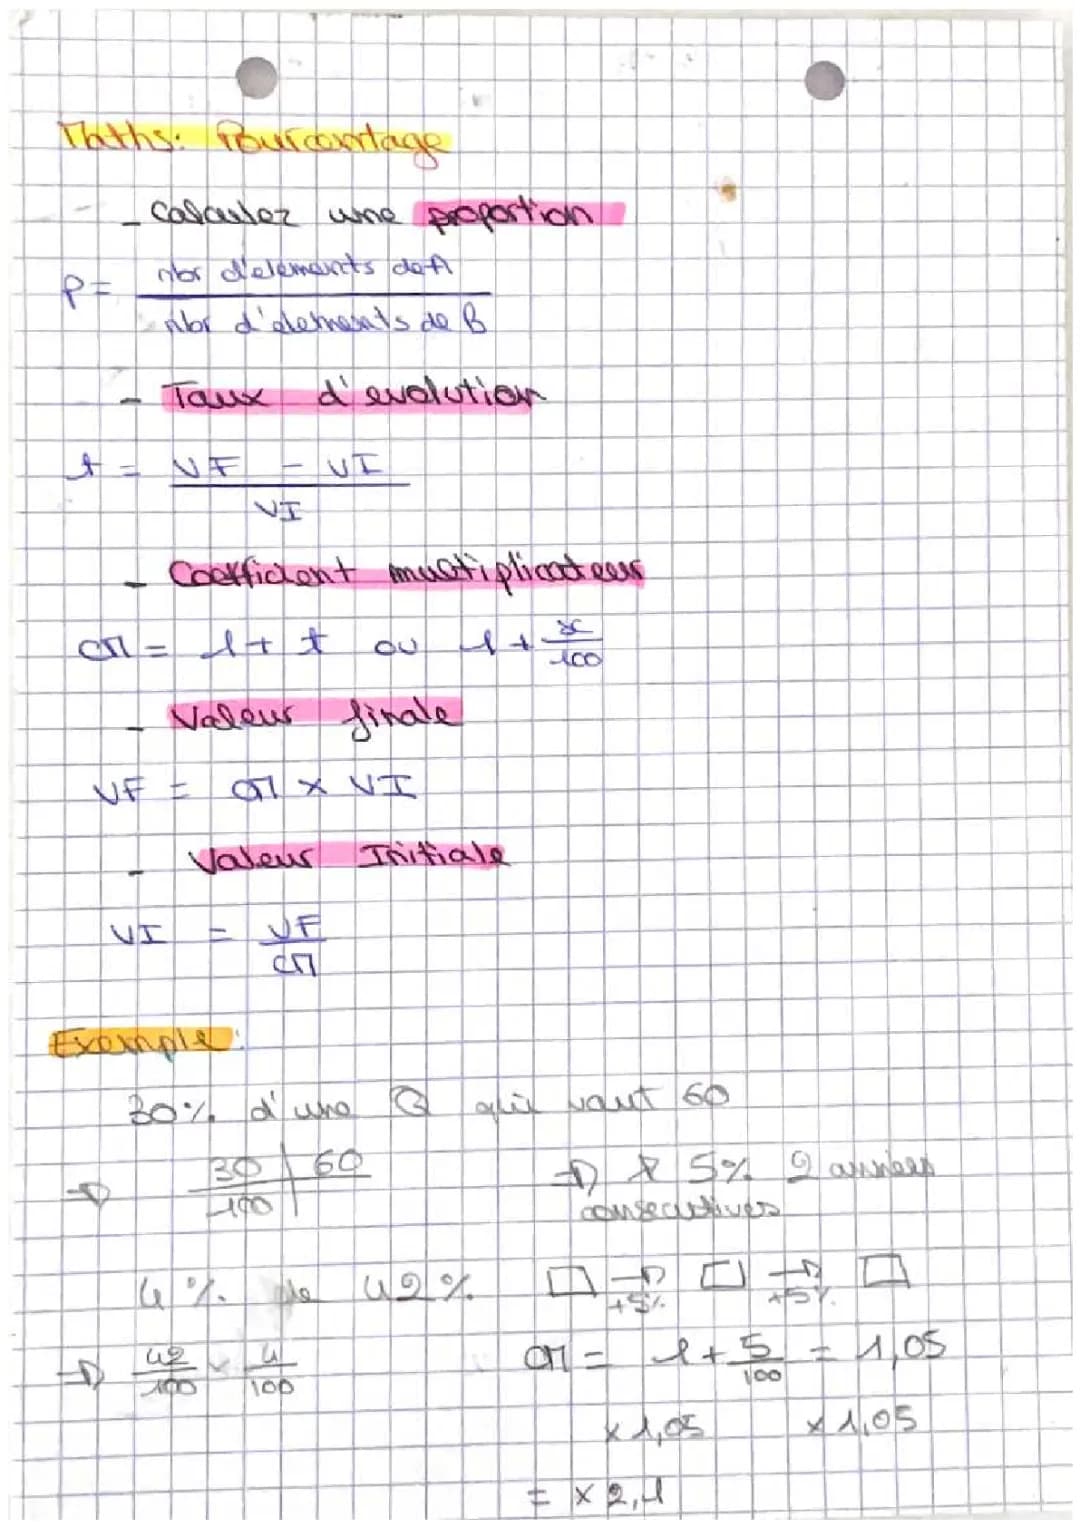 Maths: Pourcentage
- Calculer une proportion
P = nbr d'elements de A
nbr d'elements de B
- Taux d'evolution
t = VF - VI
VI
- Coefficient multiplicateur
CM = 1 + t ou 1 + x/100
- Valeur finale
VF = CM x VI
- Valeur Initiale
VI = VF
CM
Exemple:
30% d'une Q qui vaut 60
⇒ 30 | 60
100
4% de 42%
⇒ 42/100 x 4/100
⇒ 5% 2 années
consecutives
□ → □ → □
+5% +5%
CM = 1 + 5/100 = 1,05
x 1,05 x 1,05
= x 2,1